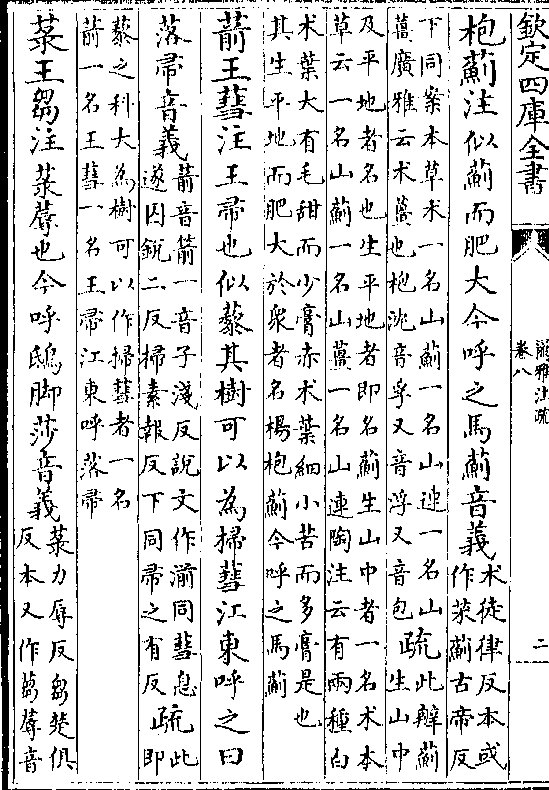 欽定四庫全書
爾雅注疏
卷八
二
枹薊注似薊而肥大今呼之馬薊音義
术徒律反本或
作茉薊古帝反
下同案本草术一名山薊一名山連一名山
薑廣雅云术薑也枹沈音孚又音浮又音包
疏
此辨薊
生山中
及平地者名也生平地者即名薊生山中者一名术本
草云一名山薊一名山薑一名山連陶注云有兩種白
术葉大有毛甜而少膏赤术葉細小苦而多膏是也
其生平地而肥大於衆者名楊枹薊今呼之馬薊
葥王蔧注王帚也似藜其樹可以為掃蔧江東呼之曰
落帚音義
葥音箭一音子淺反說文作湔同蔧息
遂囚銳二反掃素報反下同帚之有反
疏
此
即
藜之科大為樹可以作掃蔧者一名
葥一名王蔧一名王帚江東呼落帚
菉王芻注菉蓐也今呼鴟脚莎音義
菉力辱反芻楚俱
反本又作蒭蓐音